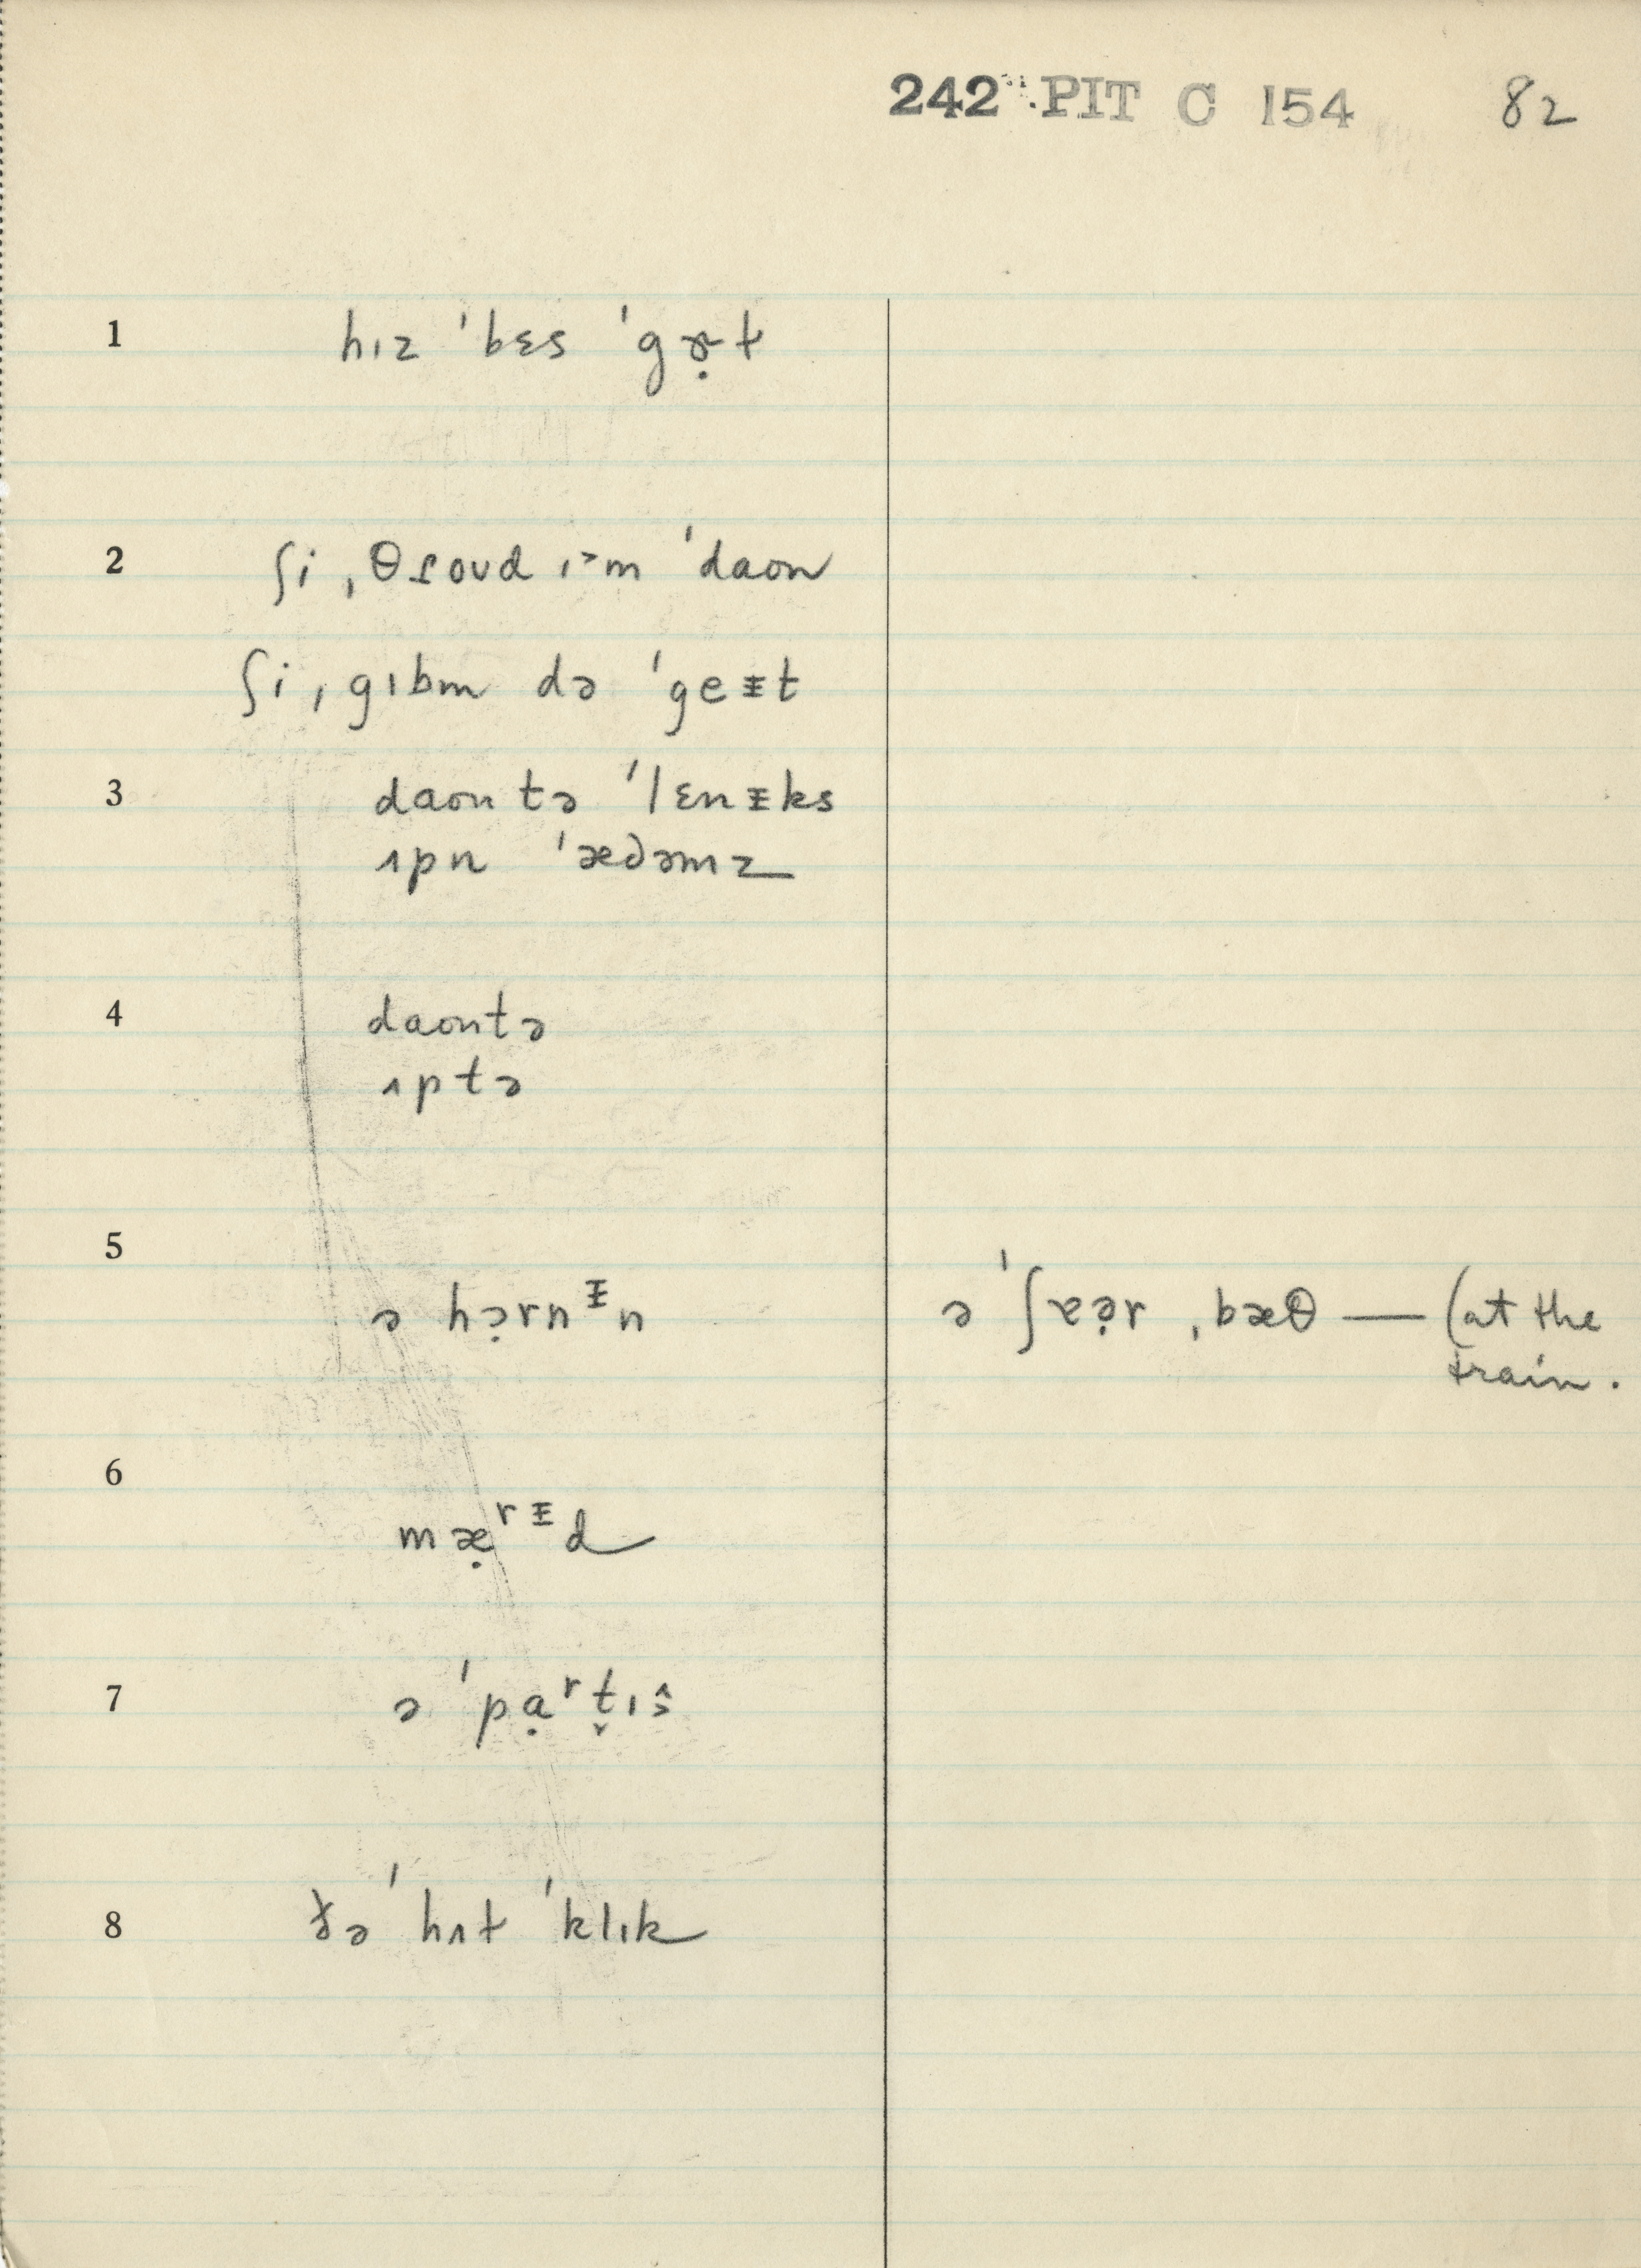 242 PIT C 154 82
1 hɪz ˈbɛs ˈgɚ̣t
2 ʃi ˌθɾoʊd ɪ˃m ˈdaon
ʃi ˌgɪbm də ˈgeᵻt
3 daon tə ˈlɛnᵻks
ʌpn ˈæd̬əmz
4 daontə
ʌptə
5 ə hə̣rnᵻn ə ˈʃɐə̣r ˌbæθ — (at the
train.
6 mæ̣ʳᵻd
7 ə ˈpạʳt̬ɪs̬
8 ðə ˈhʌt ˈklɪk